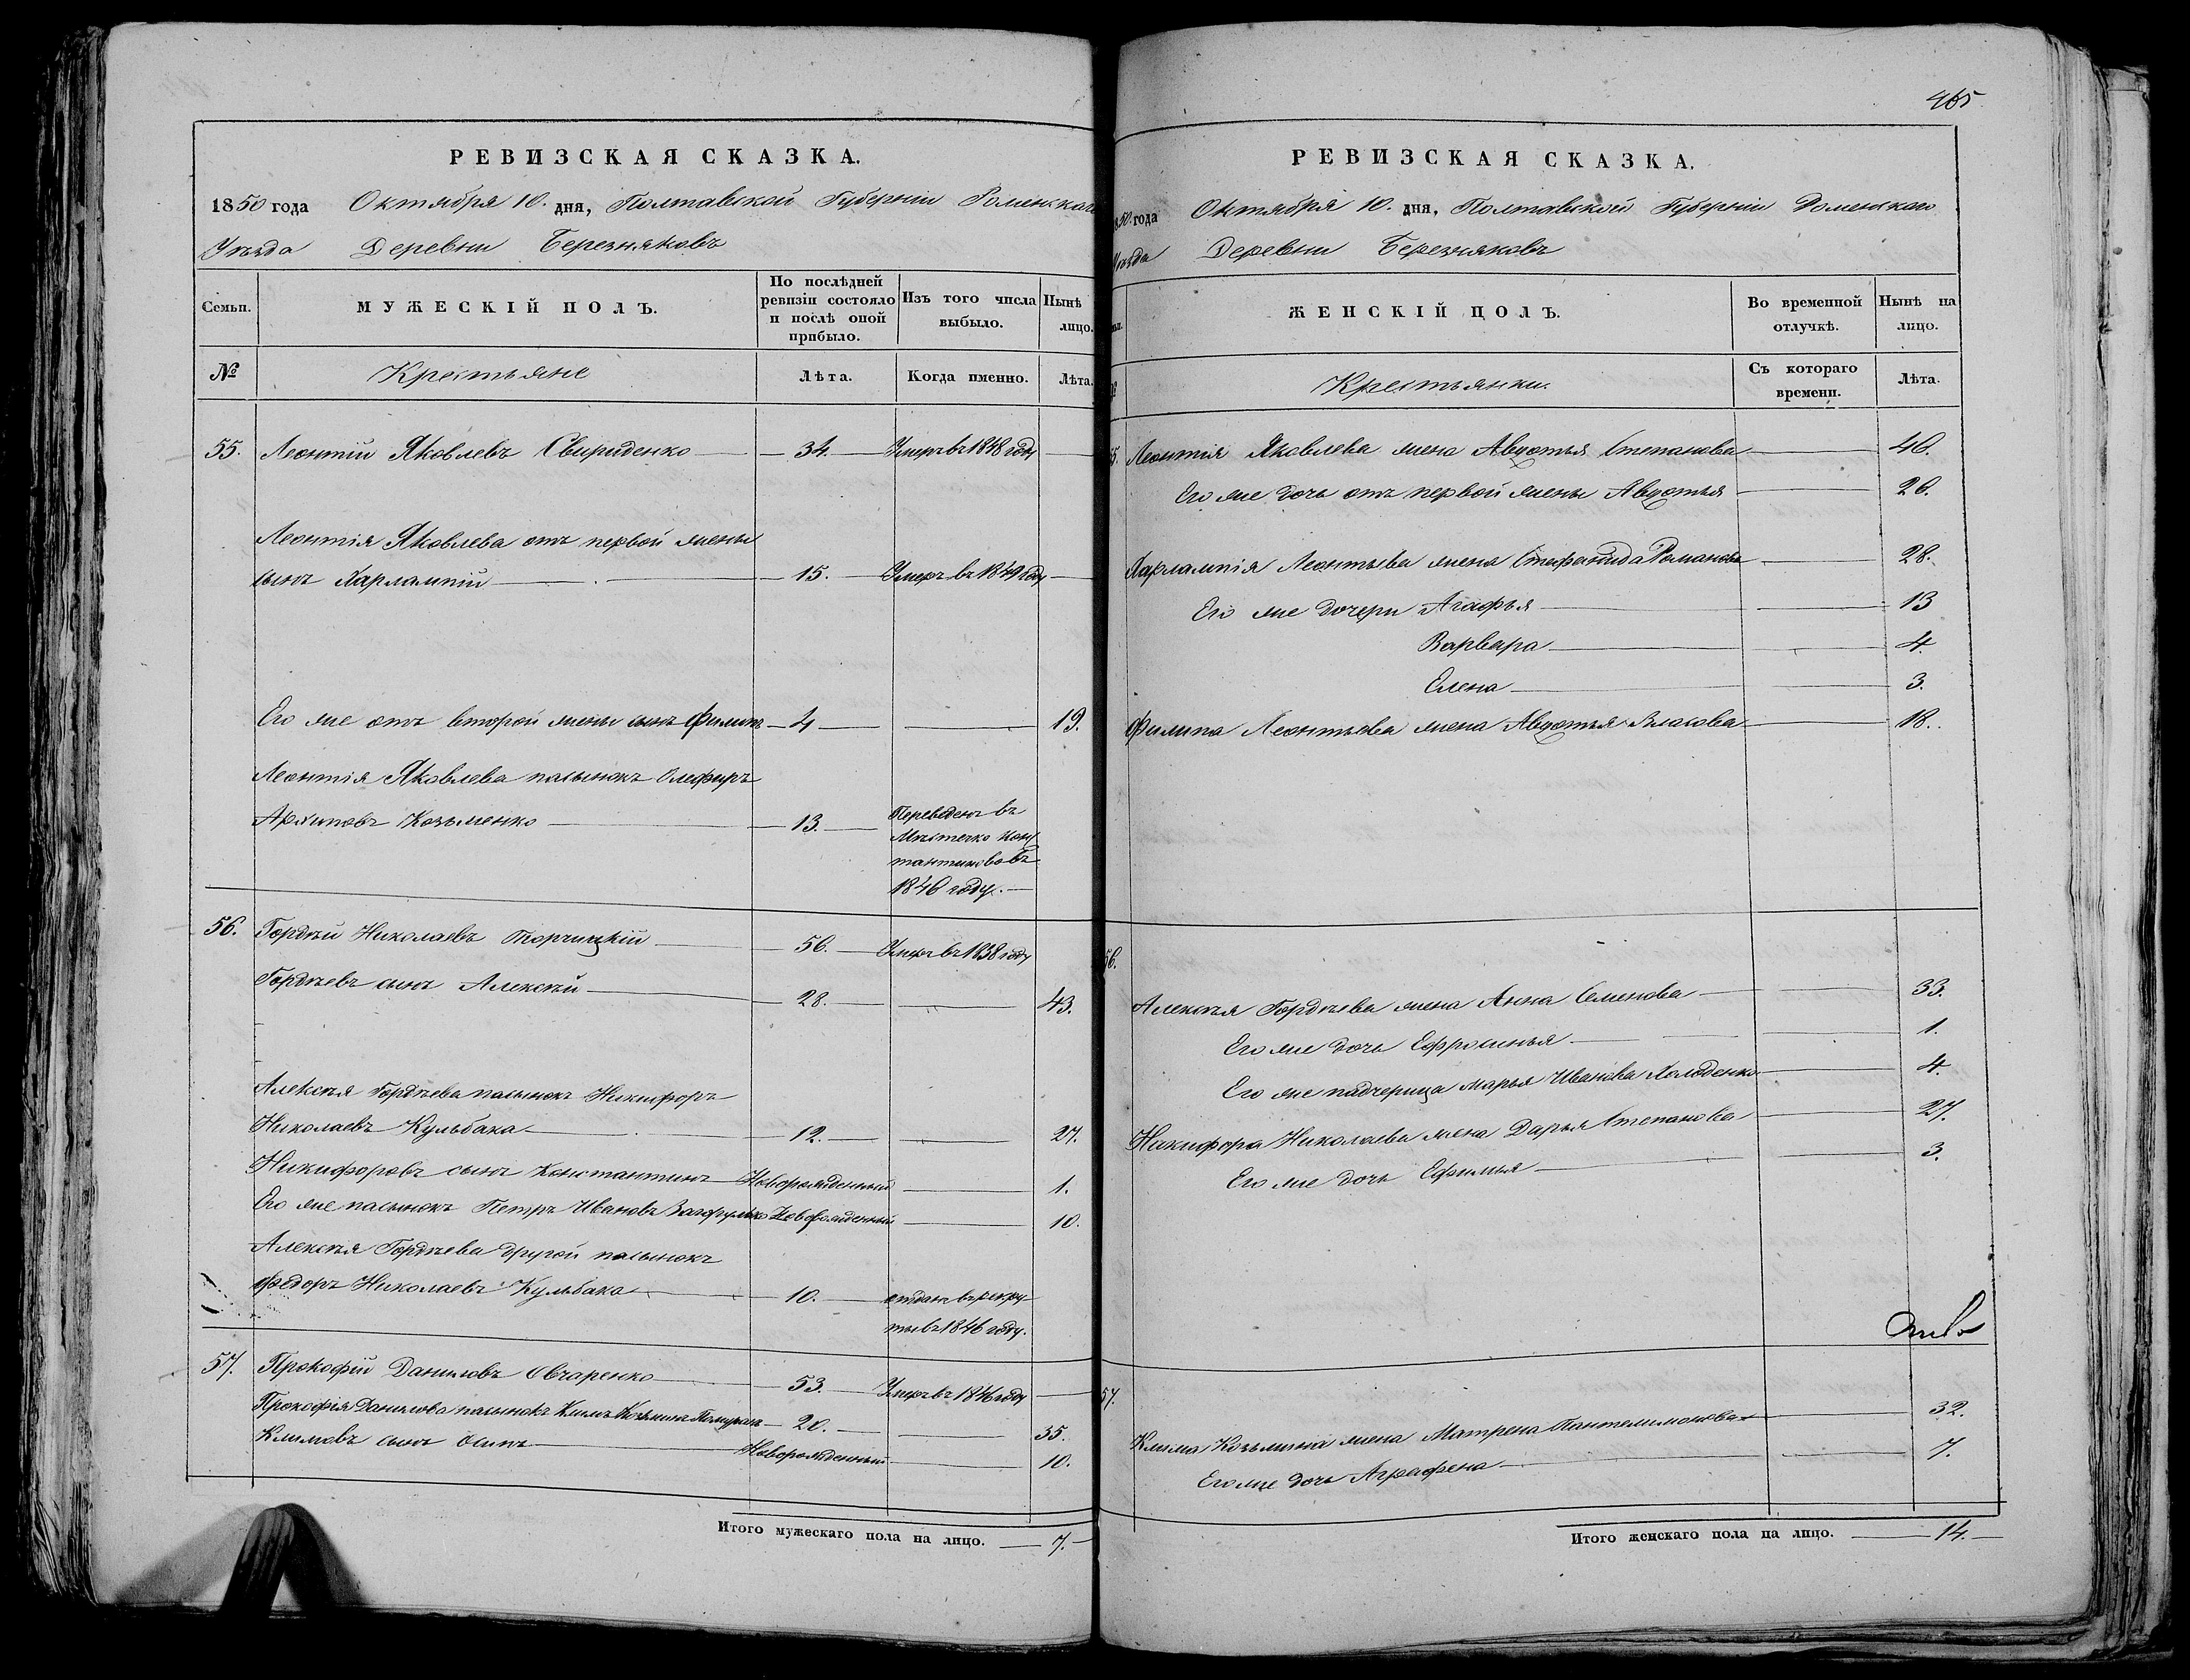 РЕВИЗСКАЯ СКАЗКА.
1850 года Октября 10. дня, Полтавской Губерніи Роменскаго
Уѣзда Деревни Березняковъ
Семьи.
МУЖЕСКІЙ ПОЛЪ.
По послѣдней
ревизіи состояло
и послѣ оной
прибыло.
Изъ того числа
выбыло.
Нынѣ
лицо.
№
Крестьяне
Лѣта.
Когда именно.
Лѣта.
55. Леонтій Яковлевъ Свириденко 34. Умеръ въ 1848 году
Леонтія Яковлева отъ первой жены
сынъ Харлампій 15. Умеръ въ 1849 году
Его же отъ второй жены сынъ Филипъ 4 19.
Леонтія Яковлева пасынокъ Олефиръ
Архиповъ Козьменко 13. Переведенъ въ
Мѣстечко Конс
тантиновъ въ
1846 году.
56. Гордѣй Николаевъ Торчицкій 56. Умеръ въ 1838 году
Гордѣевъ сынъ Алексѣй 28. 43.
Алексѣя Гордѣева пасынокъ Никифоръ
Николаевъ Кульбака 12. 27.
Никифоровъ сынъ Константинъ Новорожденный 1.
Его же пасынокъ Петръ Ивановъ Новорожденный 10.
Алексѣя Гордѣева другой пасынокъ
Федоръ Николаевъ Кульбака 10. отданъ въ рекру
ты въ 1846 году.
57. Прокофій Даниловъ Овчаренко 53. Умеръ въ 1846 году
Прокофія Данилова пасынокъ Климъ Козьминъ 20. 35.
Климовъ сынъ Осипъ Новорожденный 10.
Итого мужескаго пола на лицо. 7.
465
РЕВИЗСКАЯ СКАЗКА.
1850 года Октября 10. дня, Полтавской Губерніи Роменскаго
Уѣзда Деревни Березняковъ
ЖЕНСКІЙ ПОЛЪ.
Во временной
отлучкѣ.
Нынѣ на
лицо.
Крестьянки.
Съ котораго
времени.
Лѣта.
55. Леонтія Яковлева жена Авдотья Степанова 46.
Его же дочь отъ первой жены Авдотья 26.
Харлампія Леонтьева жена Стефанида Романова 28.
Его же дочери Агафья 13
Варвара 4.
Елена 3.
Филипа Леонтьева жена Авдотья Власова 18.
56.
Алексѣя Гордѣева жена Анна Семенова 33.
Его же дочь Ефросинья 1.
Его же падчерица Марья Иванова Холоденко 4.
Никифора Николаева жена Дарья Степанова 27.
Его же дочь Ефимья 3.
57.
Клима Козьмина жена Матрена Пантелимонова 32.
Его же дочь Аграфена 7.
Итого женскаго пола на лицо. 14.